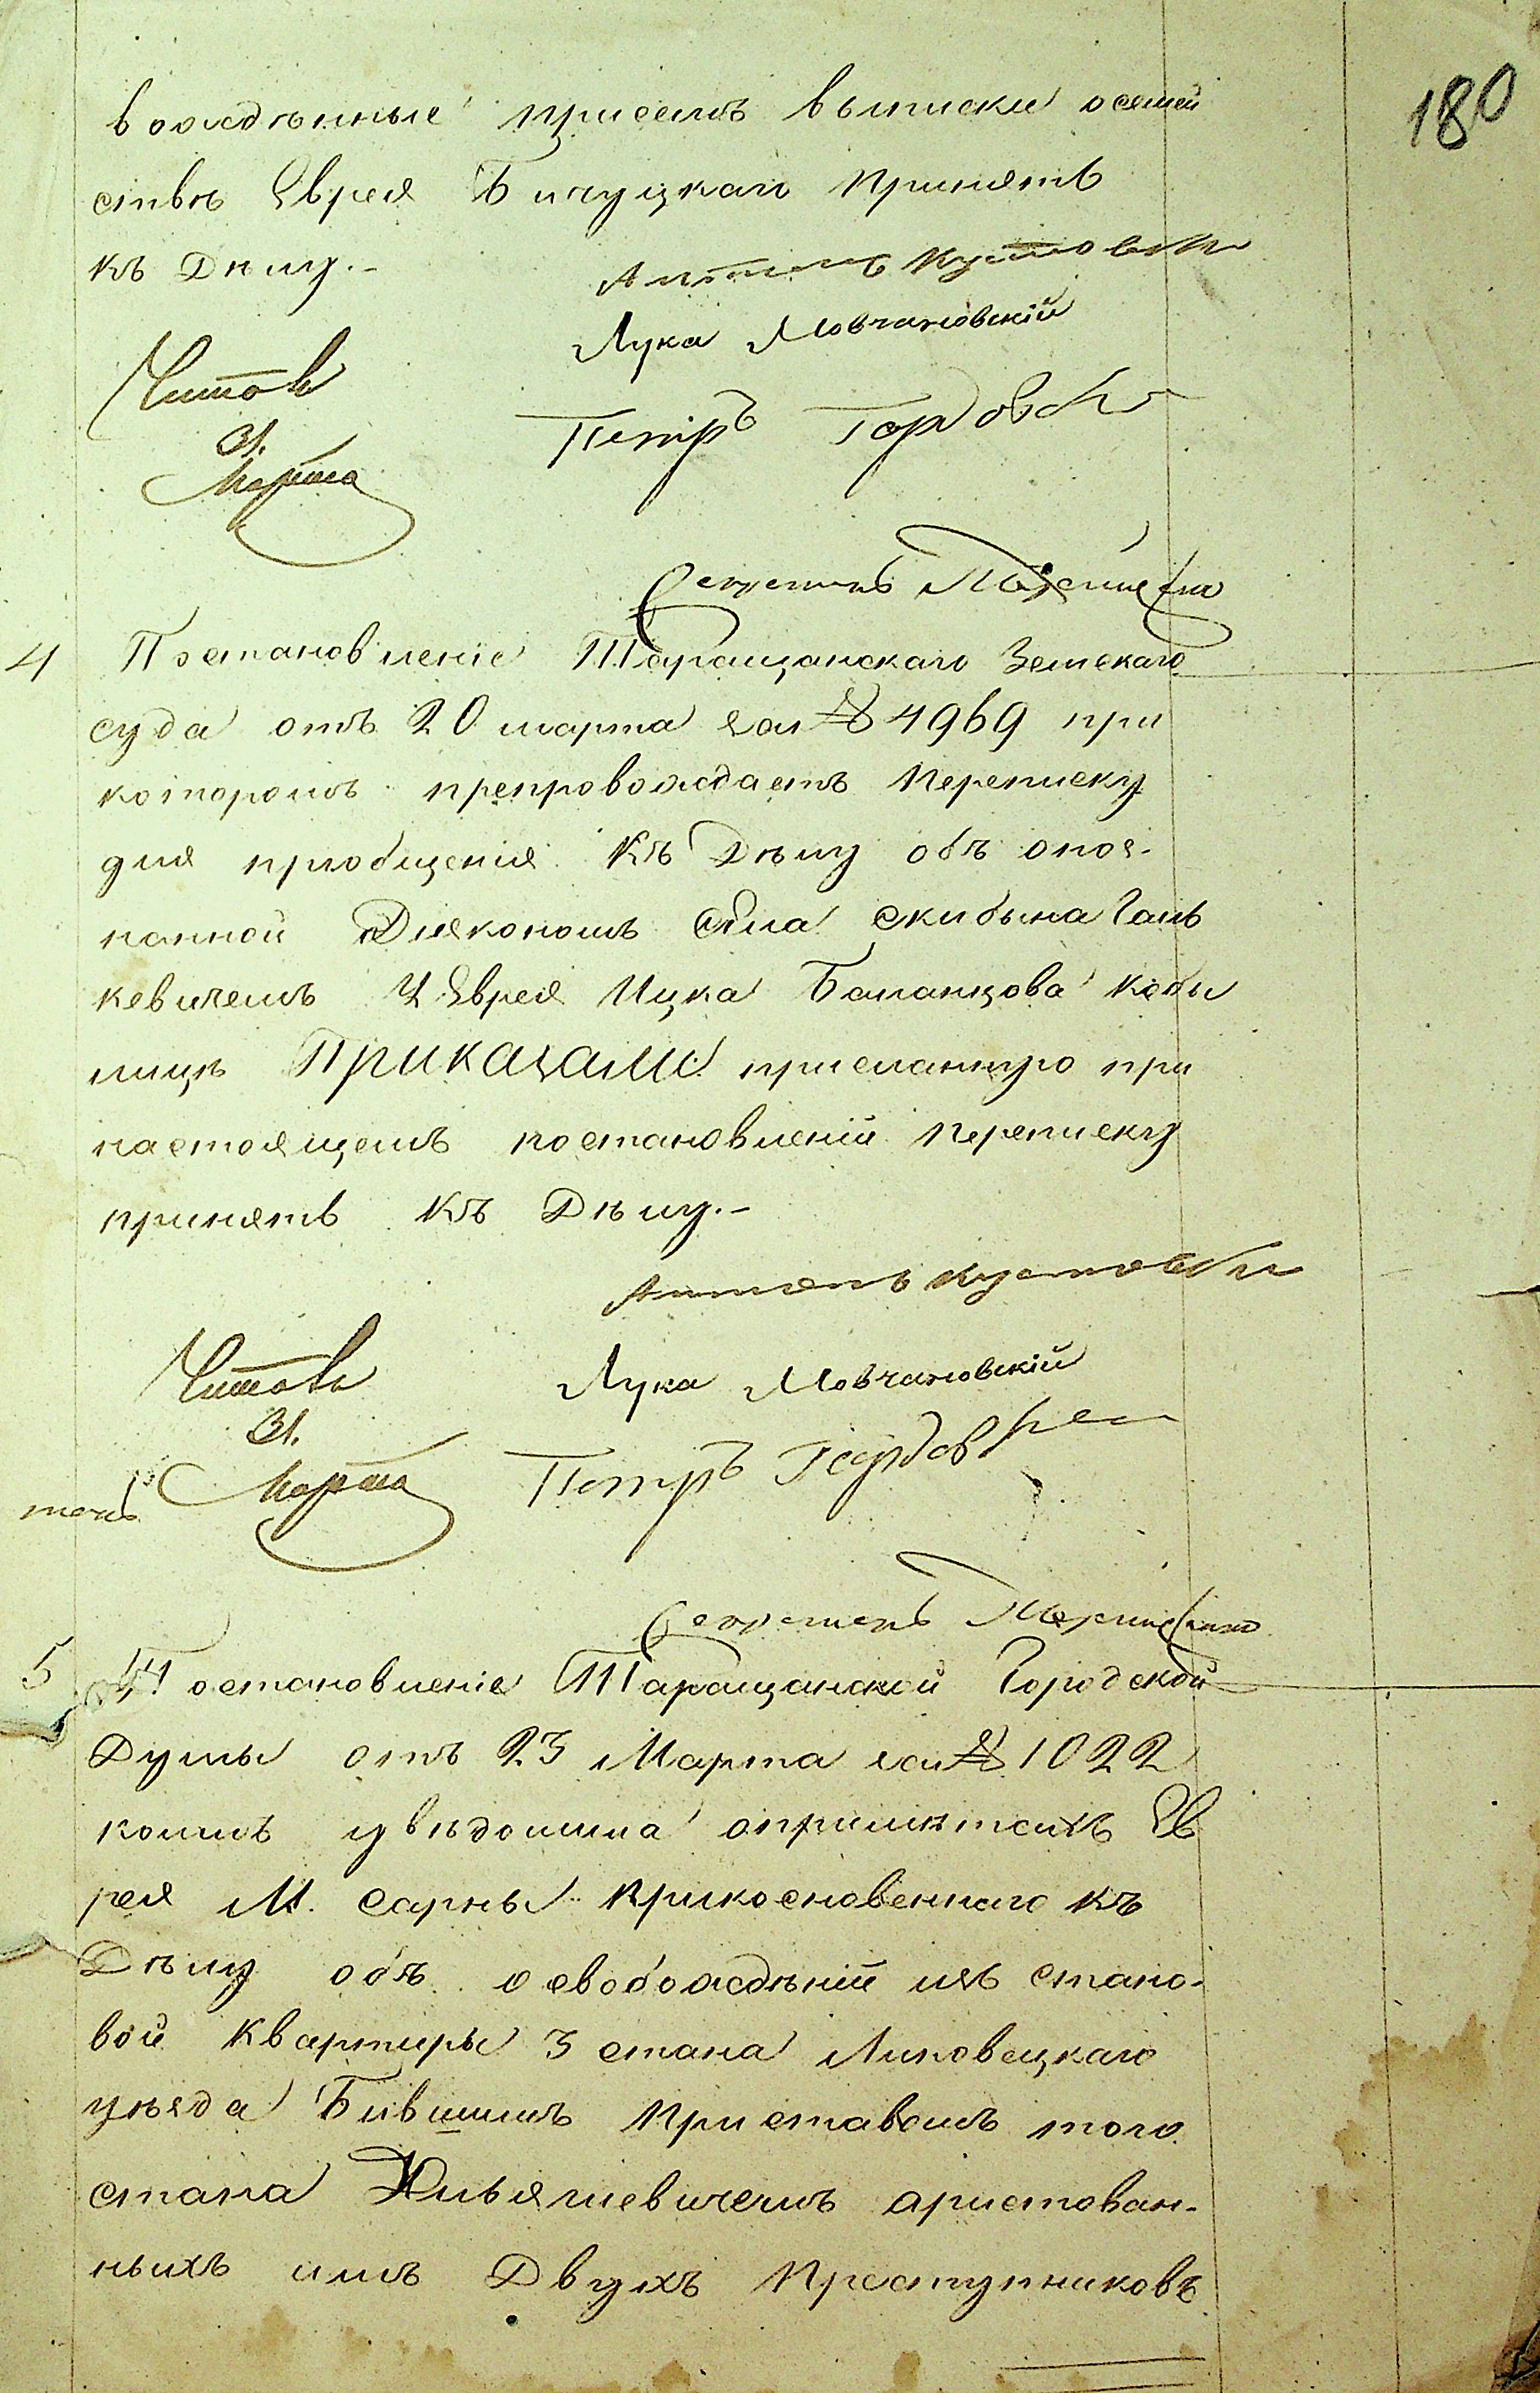 180
вождѣнные присемъ выписки осемей
ствѣ Еврея Бичуцкаго Принять
къ Дѣлу.-
Антонъ Кутовскі
Лука Мовчановскій
Читовъ
Петръ Гордовскі
31.
Марта
Секретарь
4 Постановленіе Таращанскаго Земскаго
суда отъ 20 марта за № 4969 при
которомъ препровождаетъ Переписку
для приобщенія Къ Дѣлу объ опоз-
нанной Дьякономъ села скибына Гань
кевичемъ У Еврея Ицка Баланцова Кобы
лицѣ Приказали присланную при
настоящемъ постановленіи Переписку
принять Къ Дѣлу.-
Антонъ Кутовскі
Читовъ
Лука Мовчановскій
31.
Петръ Гордовскі
Марта
Секретарь
5 Постановленіе Таращанской Городской
Думы отъ 23 Марта за № 1022
коимъ увѣдомила опримѣтахъ Ев
рея М. Сарны Прикосновеннаго къ
Дѣлу объ освобождѣніи изъ стано-
вой Квартиры 3 стана Липовецкаго
уѣзда Бившимъ Приставомъ того
стана Юльяшевичемъ аристован-
ныхъ имъ Двухъ Преступниковъ